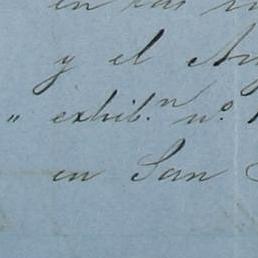 en las
y el
" exhib.n n.o
en San